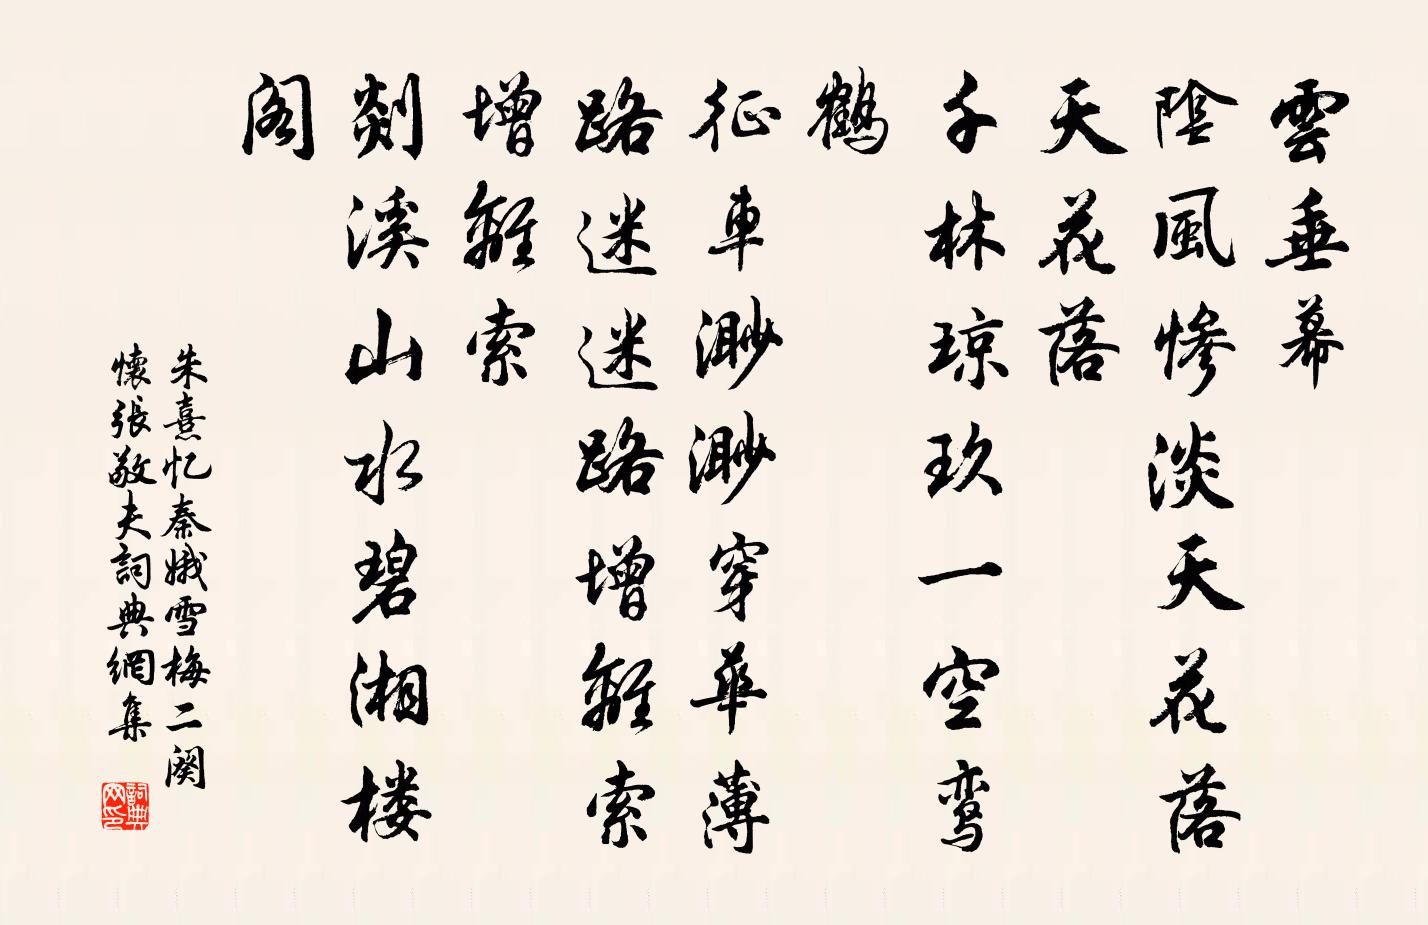 雲垂幕
陰風慘淡天花落
天花落
千林琼玖一空鸾
鶴
征車渺渺穿華薄
路迷迷路增離索
增離索
剡溪山水碧湘楼
阁
朱熹忆秦娥雪梅二阕
懷張敬夫詞典網集
詞典网印